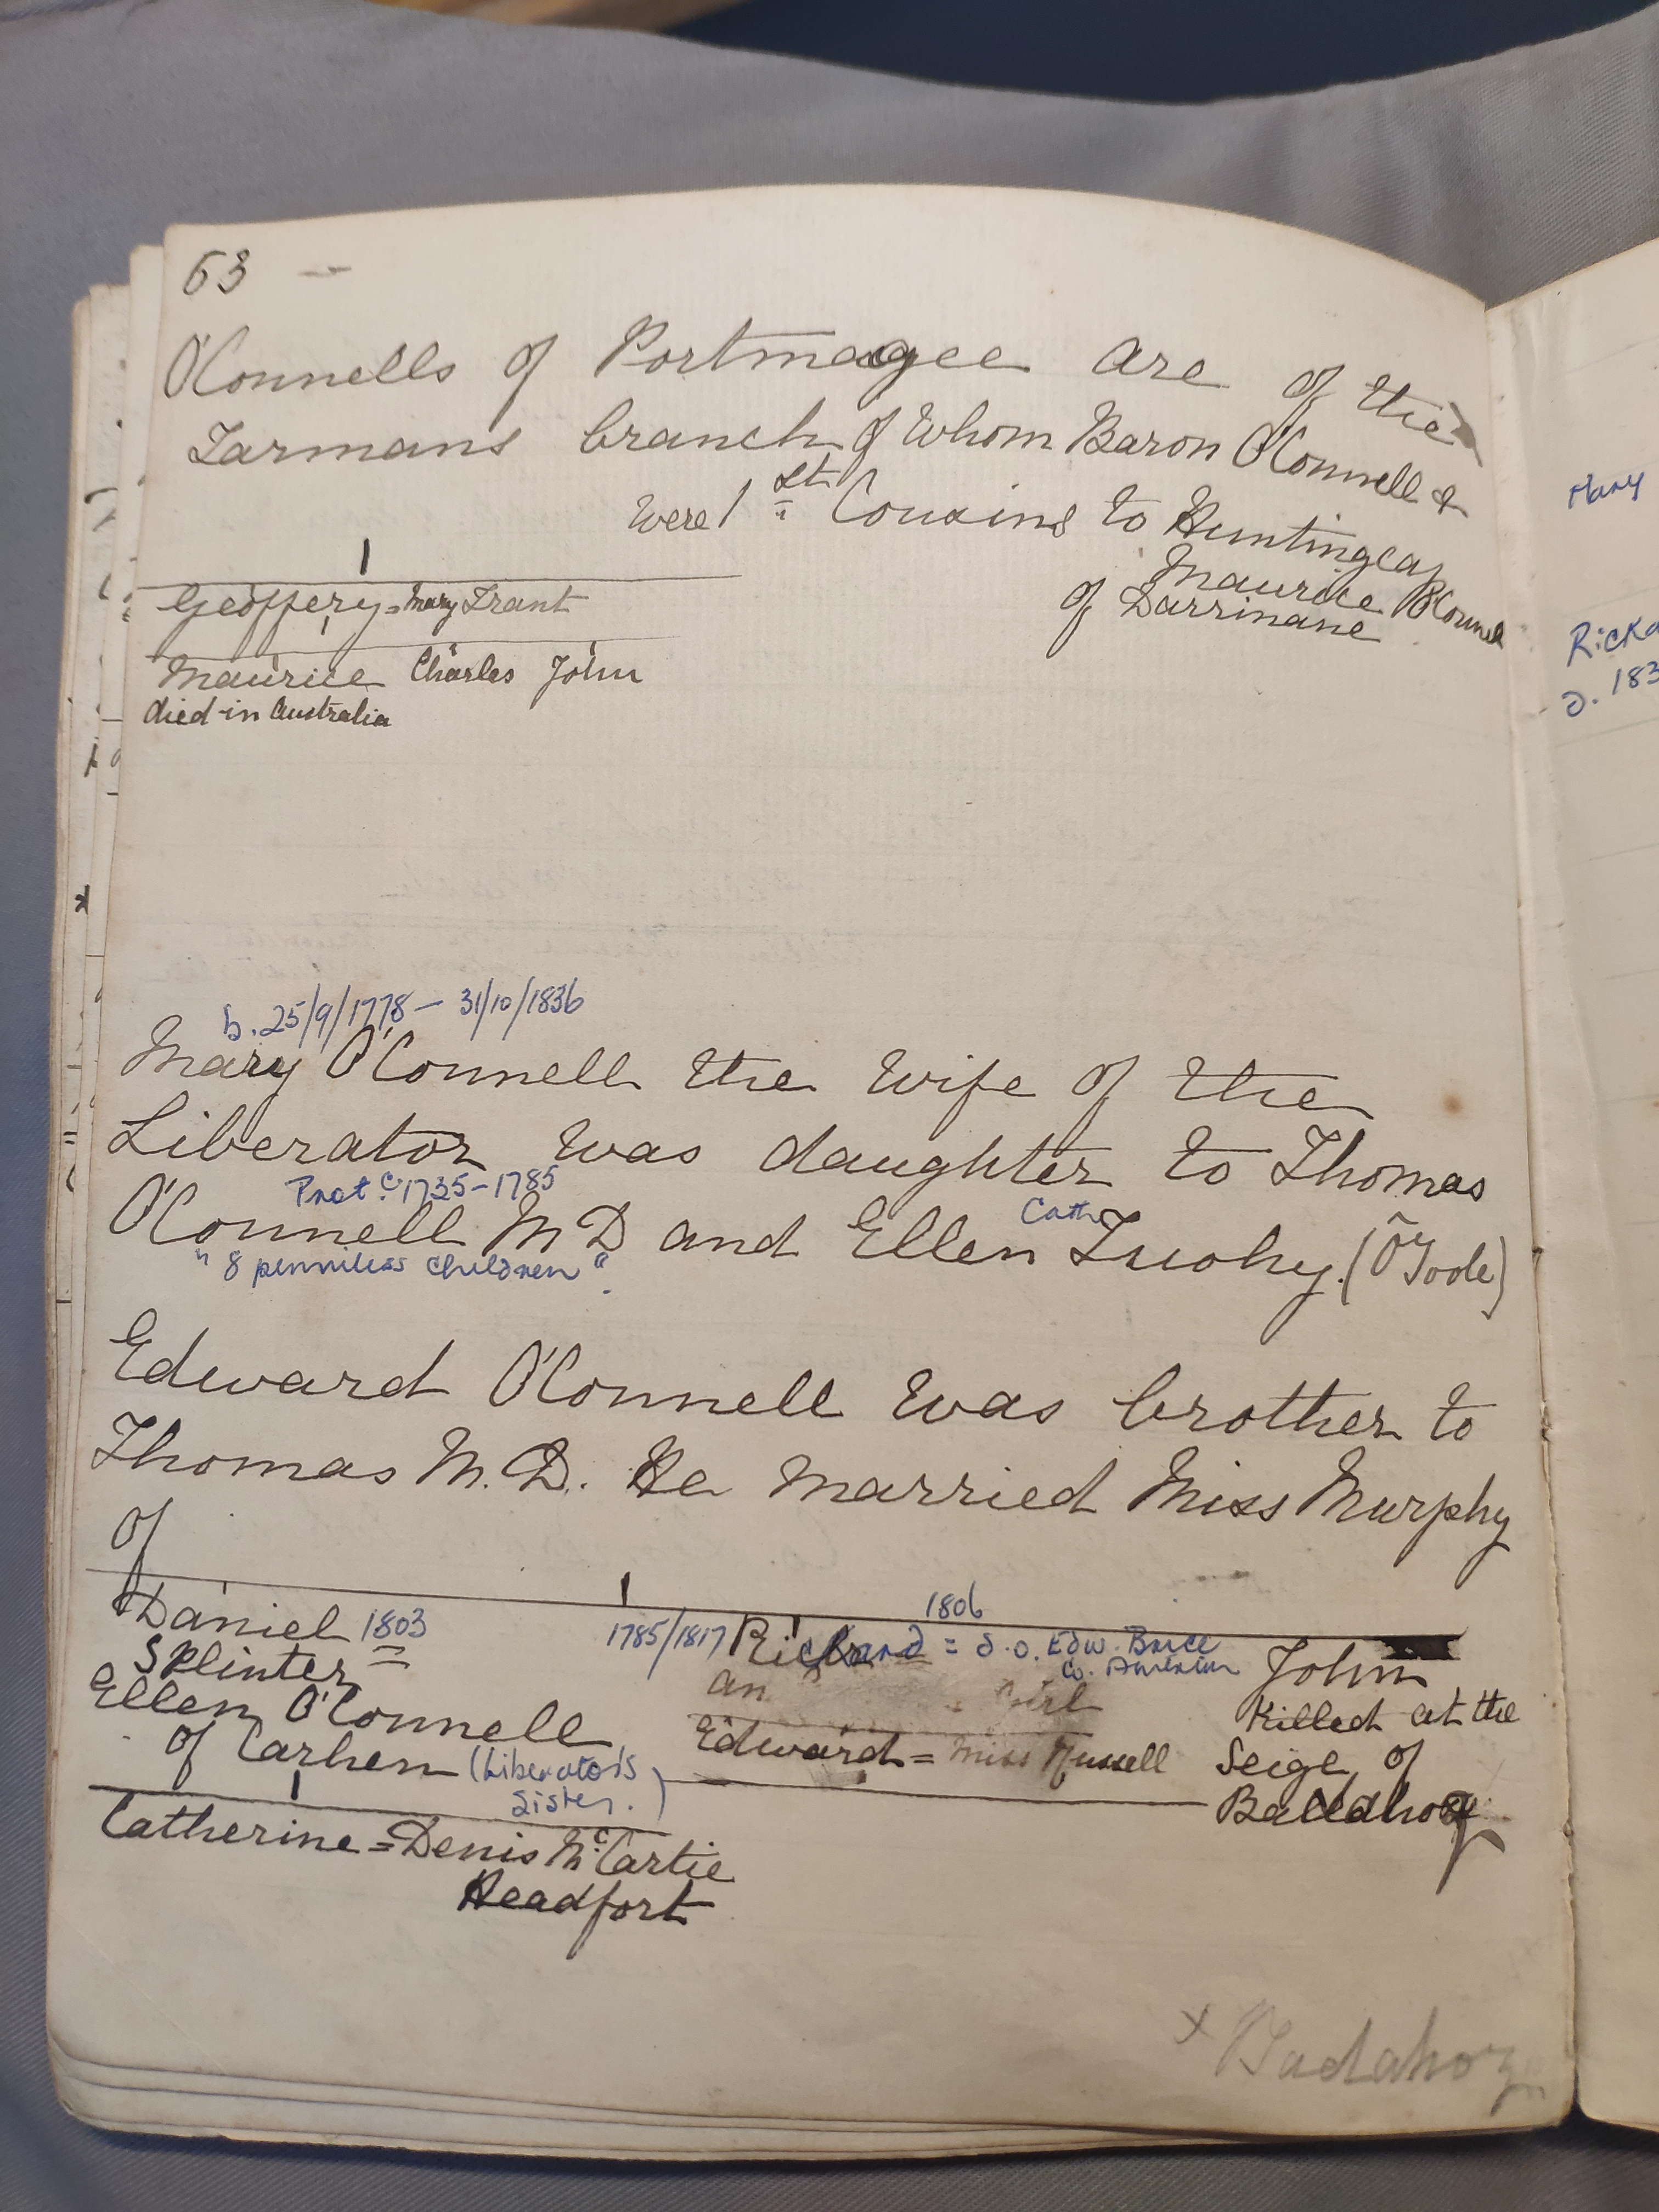 63 -
O'Connells of Portmagee are of the
Tarmans branch of Whom Baron O'Connell &
Were 1st Cousins to Huntingcap
Maurice O'Connel
of Darrinane
Geoffery = Mary Trant
Maurice Charles John
died in Australia
b. 25/9/1778 - 31/10/1836
Mary O'Connell the Wife of the
Liberator Was daughter to Thomas
Prot. c. 1735-1785
Cath.
O'Connell M D and Ellen Tuohy. (O'Toole)
"8 penniless children".
Edward O'Connell Was brother to
Thomas M.D. He Married Miss Murphy
of
1806
Daniel 1803 = 1785/1817 Rickard = d. o. Edw. Brice John
Splinter
Ellen O'Connell an girl Killed at the
of Carhen (Liberator's Sister.) Edward = Miss Russell Seige of
Catherine = Denis McCartie
Headfort
x Badahoz
Mary
d. 183